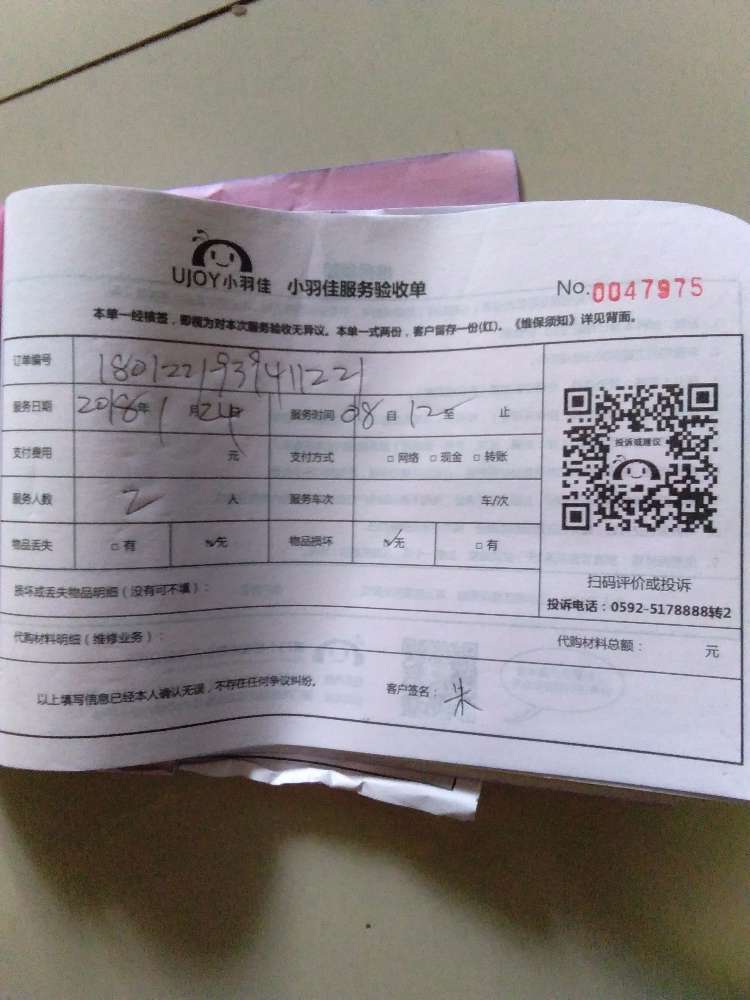 UJOY小羽佳 小羽佳服务验收单 No.0047975
本单一经核签，即视为对本次服务验收无异议。本单一式两份，客户留存一份(红)。《维保须知》详见背面。
订单编号 1801221939411221
服务日期 2018年 1月24日 服务时间 08自 12至 止
支付费用 元 支付方式 □网络 □现金 □转账
服务人数 2 人 服务车次 车/次
物品丢失 □有 ☑无 物品损坏 ☑无 □有
损坏或丢失物品明细（没有可不填）：
代购材料明细（维修业务）： 代购材料总额： 元
以上填写信息已经本人确认无误，不存在任何争议纠纷。 客户签名：朱
投诉或建议
扫码评价或投诉
投诉电话：0592-5178888转2